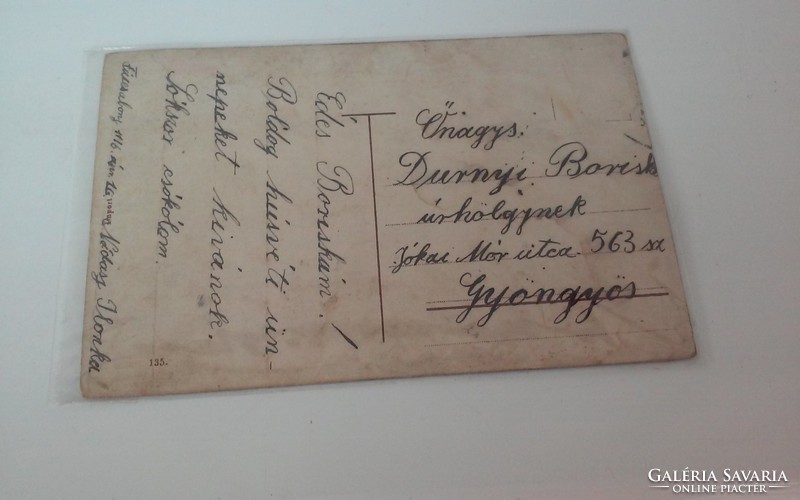 Édes Boriskám!
Boldog húsvéti ün-
nepeket kivánok.
Sokszor csókolom.
Nádasy Ilonka
135.
Őnagys.
Durnyi Borisk
úrhölgynek
Jókai Mór utca. 563 sz
Gyöngyös
GALÉRIA SAVARIA
ONLINE PIACTÉR